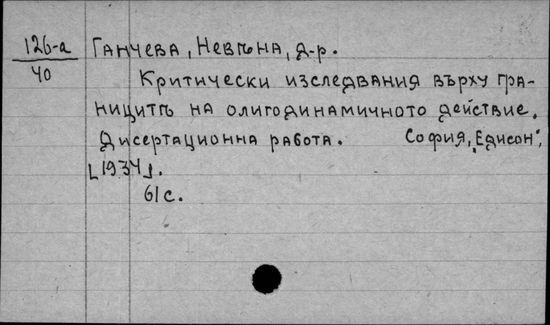 126-а
40
Ганчева, Невѣна, д-р.
Критически изследвания върху гра-
ницитѣ на олигодинамичното действие.
Дисертационна работа. София, "Едисон",
[1934].
61 с.